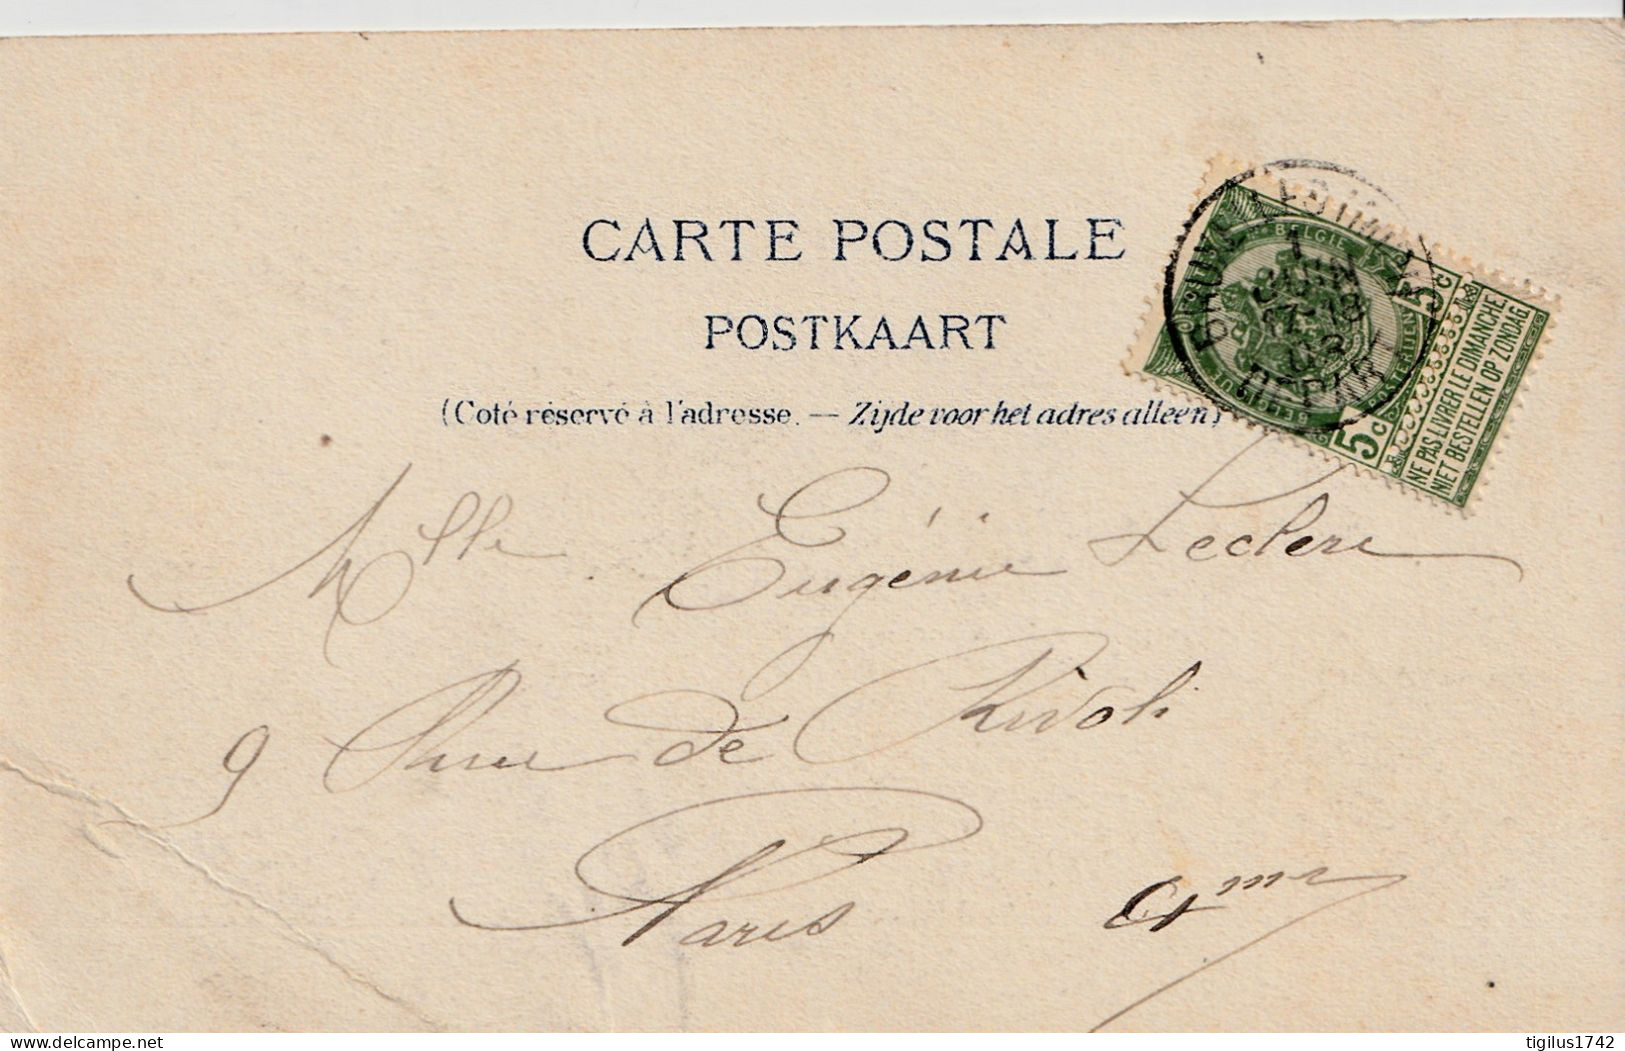 CARTE POSTALE
POSTKAART
(Coté réservé à l'adresse. — Zijde voor het adres alleen)
BELGIE
5c
5c
NE PAS LIVRER LE DIMANCHE
NIET BESTELLEN OP ZONDAG
1
JUIN
17-18
03
DEPART
Mlle Eugénie Leclerc
9 Rue de Rivoli
Paris
delcampe.net
tigilus1742